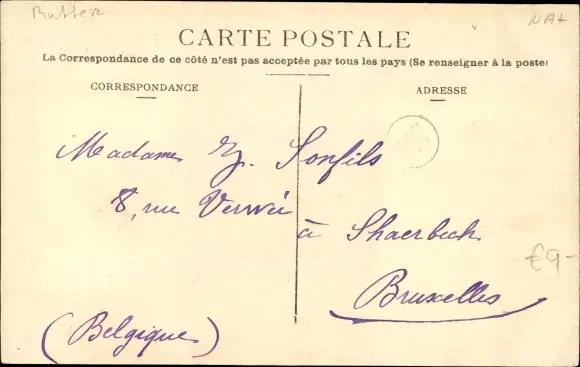 Butter
NAX
CARTE POSTALE
La Correspondance de ce côté n'est pas acceptée par tous les pays (Se renseigner à la poste)
CORRESPONDANCE
ADRESSE
Madame Sonfils
8, rue Verwée
à Shaerbeck
Bruxelles
(Belgique)
€9-